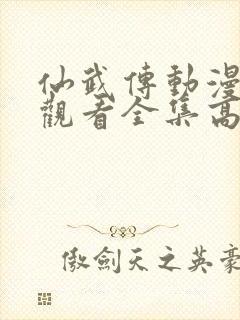 仙武傳動漫
觀看全集高
傲劍天之英豪